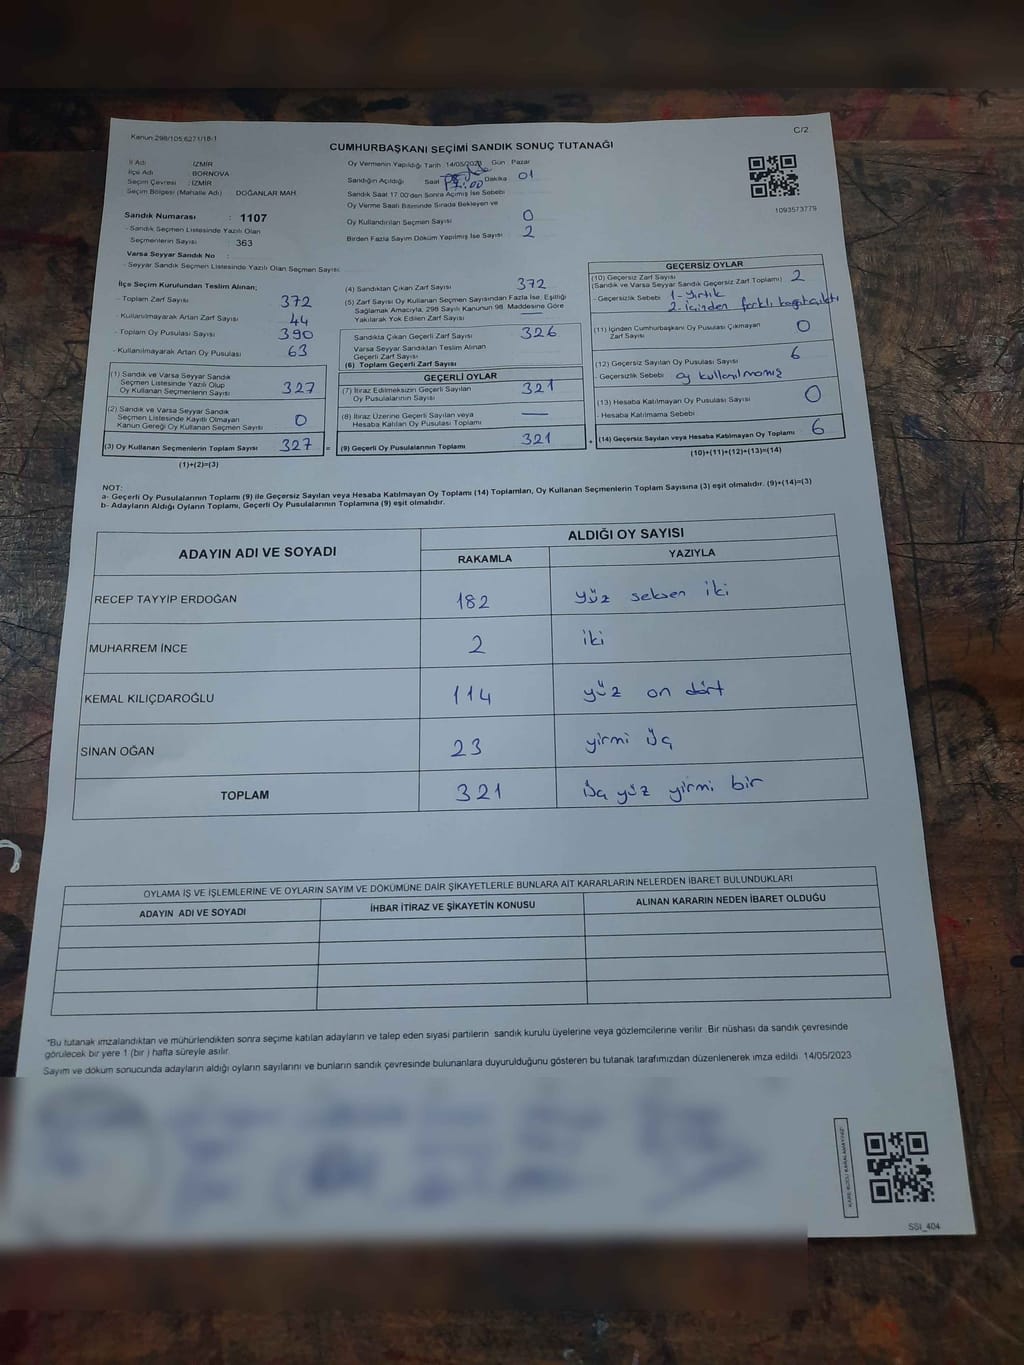 Kanun 298/105;6271/18-1
C/2
CUMHURBAŞKANI SEÇİMİ SANDIK SONUÇ TUTANAĞI
İl Adı : İZMİR
İlçe Adı : BORNOVA
Seçim Çevresi : İZMİR
Seçim Bölgesi (Mahalle Adı) : DOĞANLAR MAH.
Sandık Numarası : 1107
- Sandık Seçmen Listesinde Yazılı Olan
Seçmenlerin Sayısı : 363
Varsa Seyyar Sandık No :
- Seyyar Sandık Seçmen Listesinde Yazılı Olan Seçmen Sayısı:
Oy Vermenin Yapıldığı Tarih 14/05/2023 Gün Pazar
Sandığın Açıldığı Saat 17:00 Dakika 01
Sandık Saat 17.00'den Sonra Açılmış İse Sebebi
Oy Verme Saati Bitiminde Sırada Bekleyen ve
Oy Kullandırılan Seçmen Sayısı 0
Birden Fazla Sayım Döküm Yapılmış İse Sayısı 2
1093573779
İlçe Seçim Kurulundan Teslim Alınan;
- Toplam Zarf Sayısı 372
- Kullanılmayarak Artan Zarf Sayısı 44
- Toplam Oy Pusulası Sayısı 390
- Kullanılmayarak Artan Oy Pusulası 63
(1) Sandık ve Varsa Seyyar Sandık
Seçmen Listesinde Yazılı Olup
Oy Kullanan Seçmenlerin Sayısı 327
(2) Sandık ve Varsa Seyyar Sandık
Seçmen Listesinde Kayıtlı Olmayan
Kanun Gereği Oy Kullanan Seçmen Sayısı 0
(3) Oy Kullanan Seçmenlerin Toplam Sayısı 327 =
(1)+(2)=(3)
(4) Sandıktan Çıkan Zarf Sayısı 372
(5) Zarf Sayısı Oy Kullanan Seçmen Sayısından Fazla İse, Eşitliği
Sağlamak Amacıyla, 298 Sayılı Kanunun 98. Maddesine Göre
Yakılarak Yok Edilen Zarf Sayısı —
Sandıkta Çıkan Geçerli Zarf Sayısı 326
Varsa Seyyar Sandıktan Teslim Alınan
Geçerli Zarf Sayısı
(6) Toplam Geçerli Zarf Sayısı
GEÇERLİ OYLAR
(7) İtiraz Edilmeksizin Geçerli Sayılan
Oy Pusulalarının Sayısı 321
(8) İtiraz Üzerine Geçerli Sayılan veya
Hesaba Katılan Oy Pusulası Toplamı —
(9) Geçerli Oy Pusulalarının Toplamı 321 +
GEÇERSİZ OYLAR
(10) Geçersiz Zarf Sayısı
(Sandık ve Varsa Seyyar Sandık Geçersiz Zarf Toplamı) 2
- Geçersizlik Sebebi 1- Yırtık
2- içinden farklı kağıt çıktı
(11) İçinden Cumhurbaşkanı Oy Pusulası Çıkmayan
Zarf Sayısı 0
(12) Geçersiz Sayılan Oy Pusulası Sayısı 6
- Geçersizlik Sebebi oy kullanılmamış
(13) Hesaba Katılmayan Oy Pusulası Sayısı 0
- Hesaba Katılmama Sebebi
(14) Geçersiz Sayılan veya Hesaba Katılmayan Oy Toplamı 6
(10)+(11)+(12)+(13)=(14)
NOT:
a- Geçerli Oy Pusulalarının Toplamı (9) ile Geçersiz Sayılan veya Hesaba Katılmayan Oy Toplamı (14) Toplamları, Oy Kullanan Seçmenlerin Toplam Sayısına (3) eşit olmalıdır. (9)+(14)=(3)
b- Adayların Aldığı Oyların Toplamı, Geçerli Oy Pusulalarının Toplamına (9) eşit olmalıdır.
ADAYIN ADI VE SOYADI ALDIĞI OY SAYISI
RAKAMLA YAZIYLA
RECEP TAYYİP ERDOĞAN 182 yüz seksen iki
MUHARREM İNCE 2 iki
KEMAL KILIÇDAROĞLU 114 yüz on dört
SİNAN OĞAN 23 yirmi üç
TOPLAM 321 üç yüz yirmi bir
OYLAMA İŞ VE İŞLEMLERİNE VE OYLARIN SAYIM VE DÖKÜMÜNE DAİR ŞİKAYETLERLE BUNLARA AİT KARARLARIN NELERDEN İBARET BULUNDUKLARI
ADAYIN ADI VE SOYADI İHBAR İTİRAZ VE ŞİKAYETİN KONUSU ALINAN KARARIN NEDEN İBARET OLDUĞU
*Bu tutanak imzalandıktan ve mühürlendikten sonra seçime katılan adayların ve talep eden siyasi partilerin sandık kurulu üyelerine veya gözlemcilerine verilir. Bir nüshası da sandık çevresinde
görülecek bir yere 1 (bir) hafta süreyle asılır.
Sayım ve döküm sonucunda adayların aldığı oyların sayılarını ve bunların sandık çevresinde bulunanlara duyurulduğunu gösteren bu tutanak tarafımızdan düzenlenerek imza edildi. 14/05/2023
KARE KODU KARALAMAYINIZ!
SSI_404